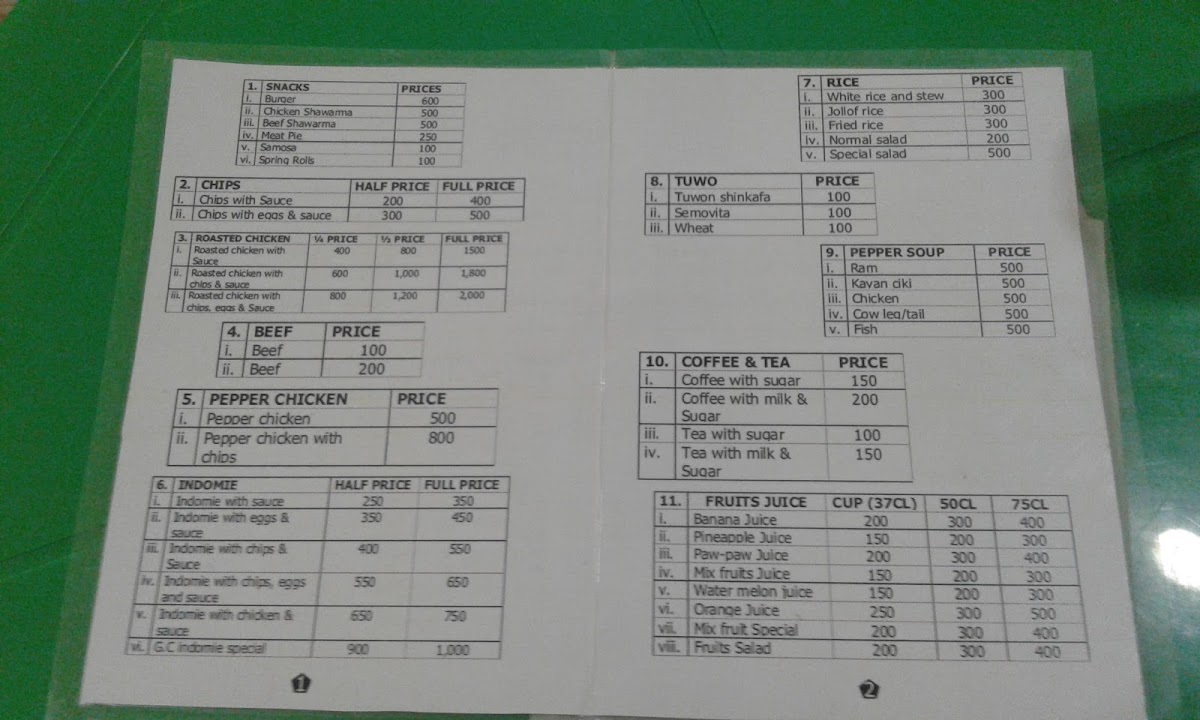 1. SNACKS PRICES
i. Burger 600
ii. Chicken Shawarma 500
iii. Beef Shawarma 500
iv. Meat Pie 250
v. Samosa 100
vi. Spring Rolls 100
2. CHIPS HALF PRICE FULL PRICE
i. Chips with Sauce 200 400
ii. Chips with eggs & sauce 300 500
3. ROASTED CHICKEN ¼ PRICE ½ PRICE FULL PRICE
i. Roasted chicken with 400 800 1500
Sauce
ii. Roasted chicken with 600 1,000 1,800
chips & sauce
iii. Roasted chicken with 800 1,200 2,000
chips, eggs & Sauce
4. BEEF PRICE
i. Beef 100
ii. Beef 200
5. PEPPER CHICKEN PRICE
i. Pepper chicken 500
ii. Pepper chicken with 800
chips
6. INDOMIE HALF PRICE FULL PRICE
i. Indomie with sauce 250 350
ii. Indomie with eggs & 350 450
sauce
iii. Indomie with chips & 400 550
Sauce
iv. Indomie with chips, eggs 550 650
and sauce
v. Indomie with chicken & 650 750
sauce
vi. G.C indomie special 900 1,000
1
7. RICE PRICE
i. White rice and stew 300
ii. Jollof rice 300
iii. Fried rice 300
iv. Normal salad 200
v. Special salad 500
8. TUWO PRICE
i. Tuwon shinkafa 100
ii. Semovita 100
iii. Wheat 100
9. PEPPER SOUP PRICE
i. Ram 500
ii. Kayan ciki 500
iii. Chicken 500
iv. Cow leg/tail 500
v. Fish 500
10. COFFEE & TEA PRICE
i. Coffee with sugar 150
ii. Coffee with milk & 200
Sugar
iii. Tea with sugar 100
iv. Tea with milk & 150
Sugar
11. FRUITS JUICE CUP (37CL) 50CL 75CL
i. Banana Juice 200 300 400
ii. Pineapple Juice 150 200 300
iii. Paw-paw Juice 200 300 400
iv. Mix fruits Juice 150 200 300
v. Water melon juice 150 200 300
vi. Orange Juice 250 300 500
vii. Mix fruit Special 200 300 400
viii. Fruits Salad 200 300 400
2